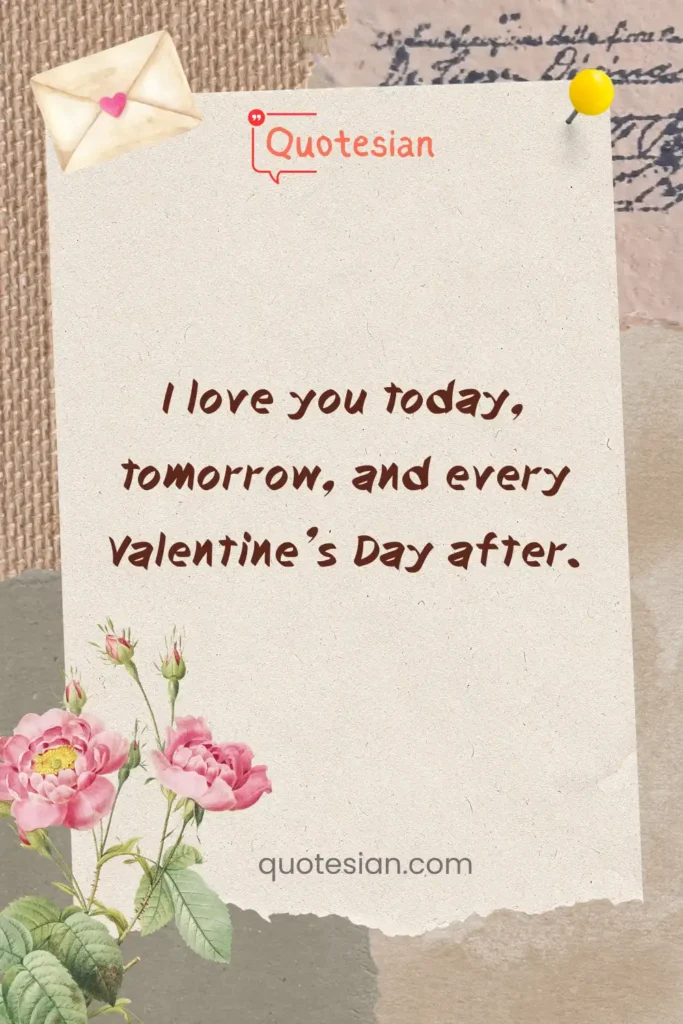 Quotesian
I love you today,
tomorrow, and every
Valentine's Day after.
quotesian.com